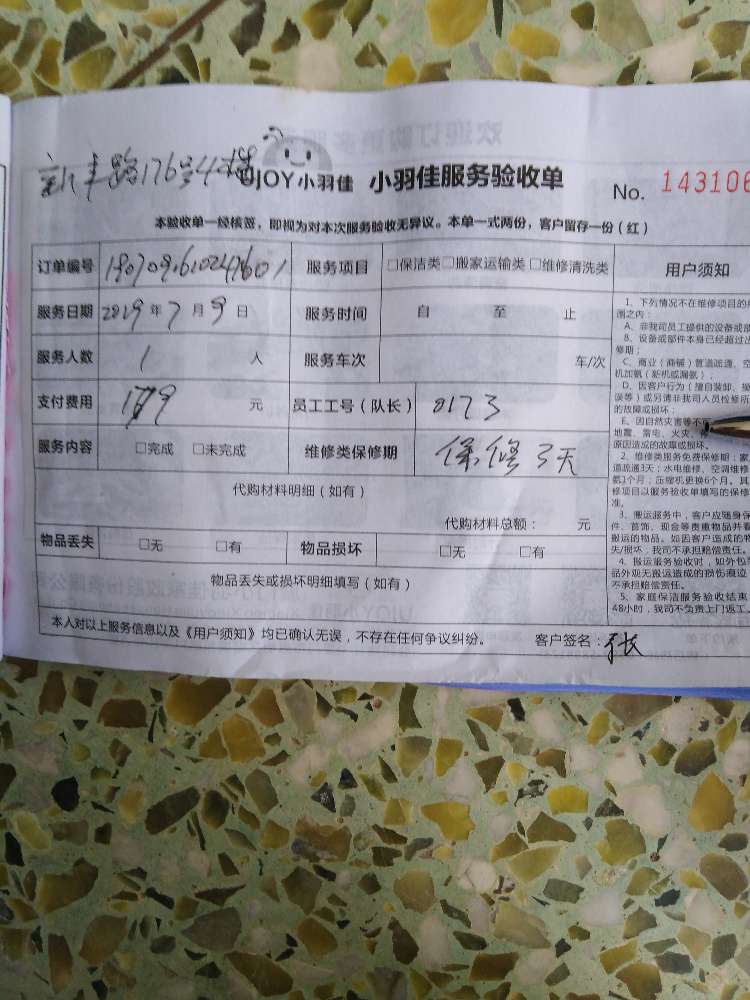 路176号4楼
UJOY小羽佳 小羽佳服务验收单 No. 143106
本验收单一经核签，即视为对本次服务验收无异议。本单一式两份，客户留存一份（红）
订单编号 服务项目 □保洁类□搬家运输类□维修清洗类 用户须知
服务日期 2019 年 7 月 9 日 服务时间 自 至 止
服务人数 1 人 服务车次 车/次
支付费用 179 元 员工工号（队长） 0173
服务内容 □完成 □未完成 维修类保修期 保修3天
代购材料明细（如有）
代购材料总额： 元
物品丢失 □无 □有 物品损坏 □无 □有
物品丢失或损坏明细填写（如有）
本人对以上服务信息以及《用户须知》均已确认无误，不存在任何争议纠纷。 客户签名：张
1、下列情况不在维修项目的
围之内：
A、非我司员工提供的设备或部
B、设备或部件本身已经超过
修期；
C、商业（商铺）管道疏通、空
机加氨（新机或漏氨）；
D、因客户行为（擅自装卸、
误等）或另请非我司人员检修所
的故障或损坏；
E、因自然灾害等不
地震、雷电、火灾、
原因造成的故障或损坏。
2、维修类服务免费保修期：家
道疏通3天；水电维修、空调维修
氨1个月；压缩机更换6个月。其
修项目以服务验收单填写的保修
准。
3、搬运服务中，客户应随身保
件、首饰、现金等贵重物品并看
搬运的物品。如因客户造成的物
失/损坏，我司不承担赔偿责任。
4、搬运服务验收时，如外包
品外观无搬运造成的损伤痕迹
不承担赔偿责任。
5、家庭保洁服务验收结束
48小时，我司不负责上门返工